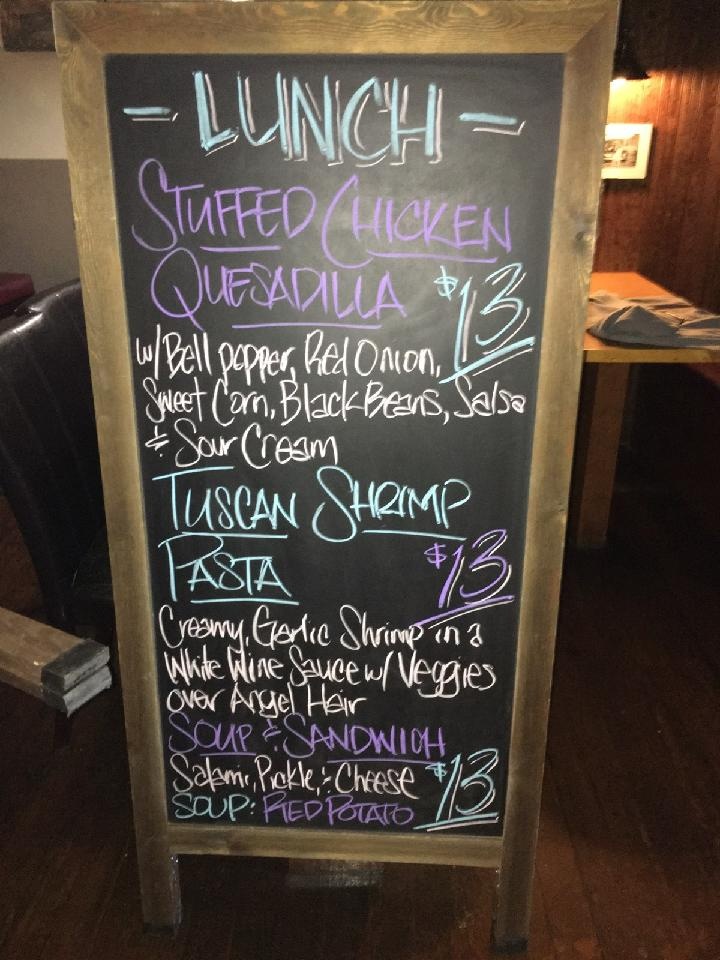 - LUNCH -
STUFFED CHICKEN
QUESADILLA $13
w/ Bell pepper, Red Onion,
Sweet Corn, Black Beans, Salsa
& Sour Cream
TUSCAN SHRIMP
PASTA $13
Creamy, Garlic Shrimp in a
White Wine Sauce w/ Veggies
over Angel Hair
SOUP & SANDWICH
Salami, Pickle, & Cheese $13
SOUP: RED POTATO